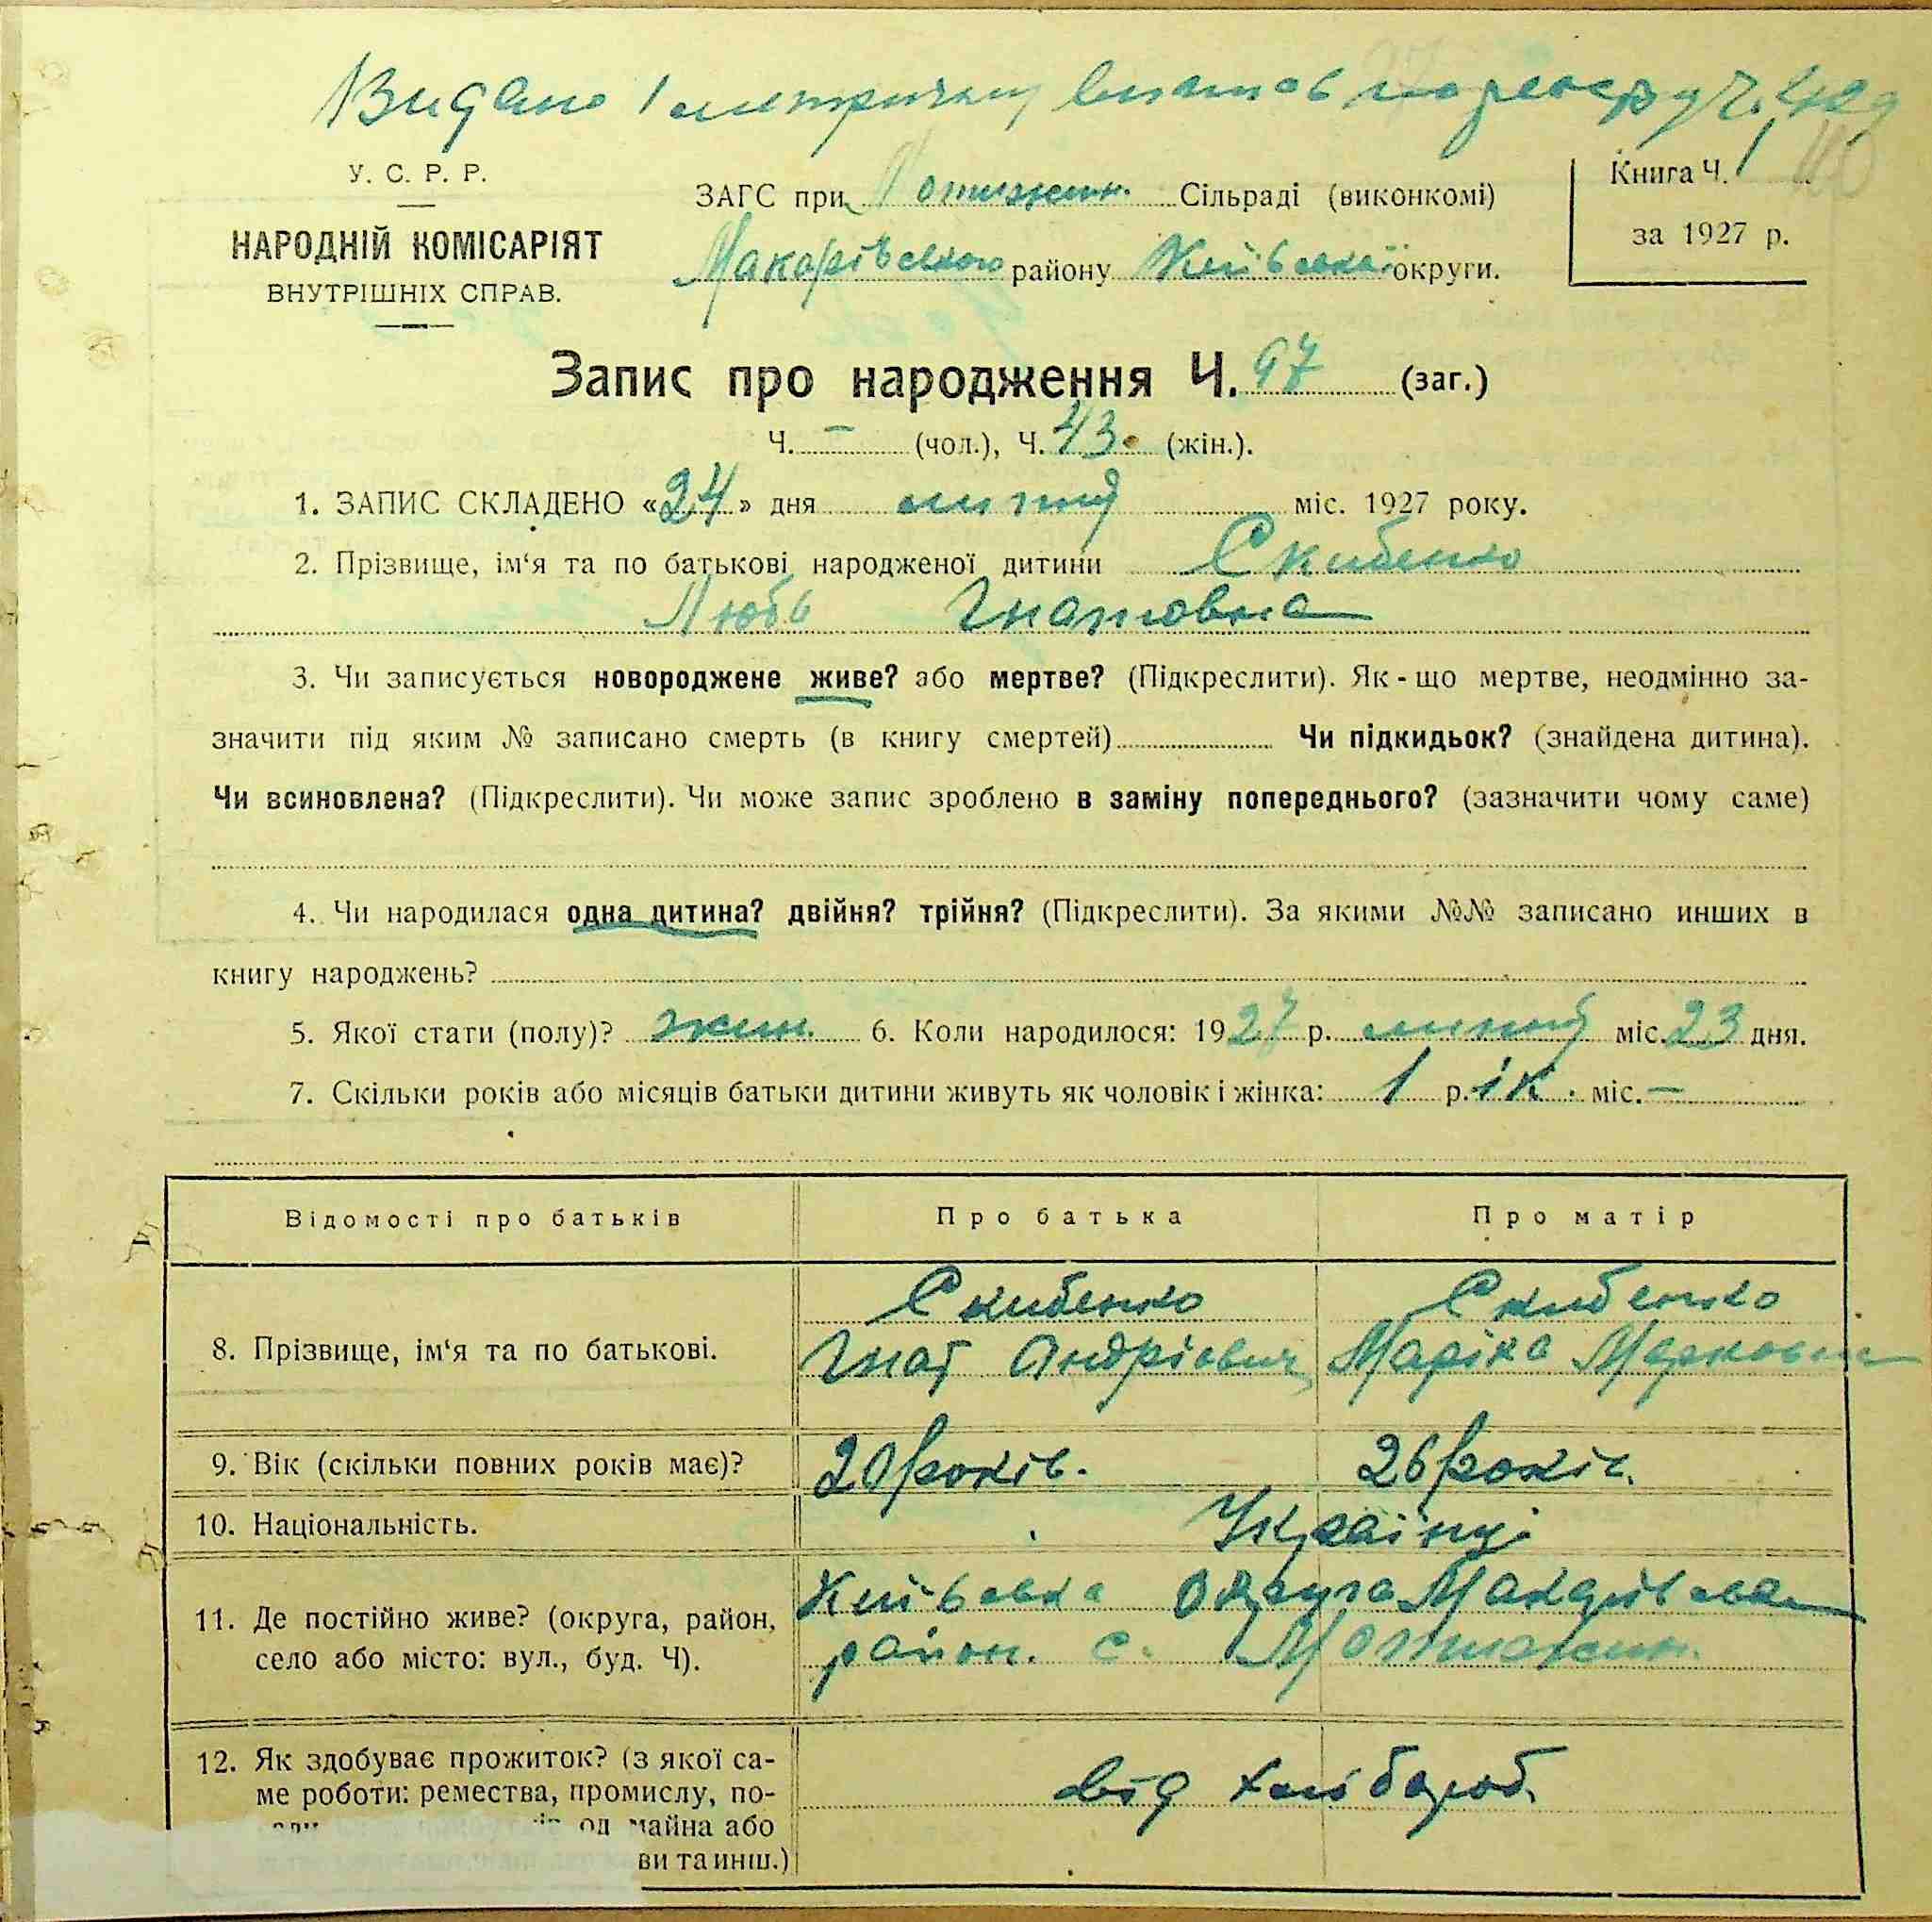 Видано 1 метричну витяг по реєстру Ч. 429
У. С. Р. Р.
НАРОДНІЙ КОМІСАРІЯТ
ВНУТРІШНІХ СПРАВ.
ЗАГС при Мотижин. Сільраді (виконкомі)
Макарівського району Київської округи.
Книга Ч. 1
за 1927 р.
Запис про народження Ч. 97 (заг.)
Ч. — (чол.), Ч. 43. (жін.).
1. ЗАПИС СКЛАДЕНО «24» дня міс. 1927 року.
2. Прізвище, ім‘я та по батькові народженої дитини Скибенко
Любь Гнатовна
3. Чи записується новороджене живе? або мертве? (Підкреслити). Як-що мертве, неодмінно за-
значити під яким № записано смерть (в книгу смертей) Чи підкидьок? (знайдена дитина).
Чи всиновлена? (Підкреслити). Чи може запис зроблено в заміну попереднього? (зазначити чому саме)
4. Чи народилася одна дитина? двійня? трійня? (Підкреслити). За якими №№ записано инших в
книгу народжень?
5. Якої стати (полу)? жин. 6. Коли народилося: 1927 р. міс. 23 дня.
7. Скільки років або місяців батьки дитини живуть як чоловік і жінка: 1 р. ік. міс. —
Відомості про батьків
Про батька
Про матір
8. Прізвище, ім‘я та по батькові.
Скибенко
Гнат Андріович
Скибенко
Маріка Марковна
9. Вік (скільки повних років має)?
20 років.
26 років.
10. Національність.
Українці
11. Де постійно живе? (округа, район,
село або місто: вул., буд. Ч).
Київська Округа Макарівськ
район. с. Мотижин.
12. Як здобуває прожиток? (з якої са-
ме роботи: ремества, промислу, по-
од майна або
ви та инш.)
від хлібороб.